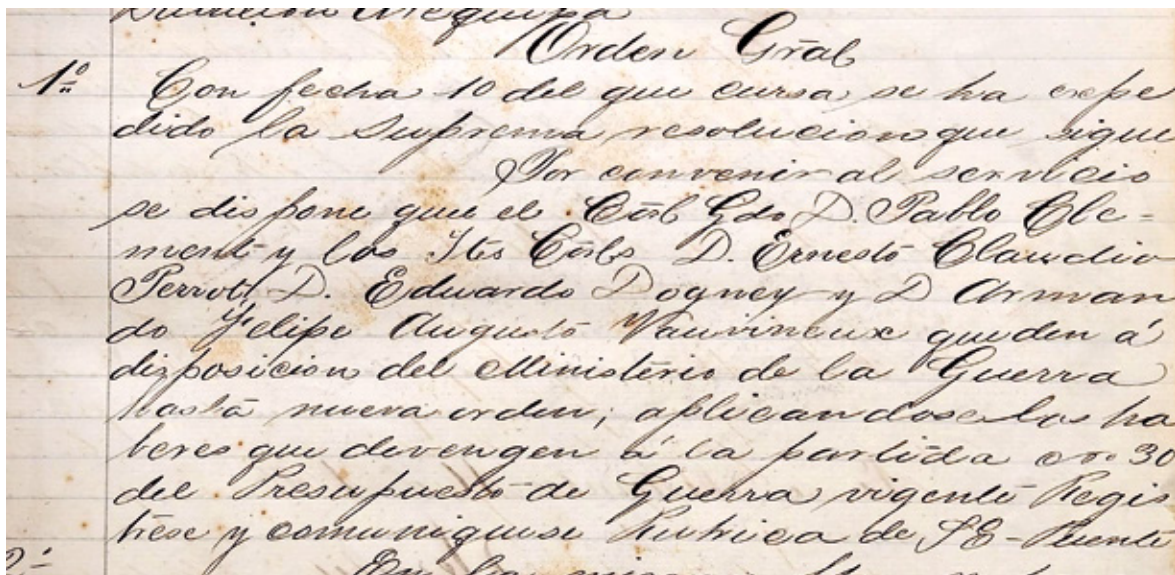 Orden Gral
1º Con fecha 10 del que cursa, se ha expe
dido la Suprema resolucion que sigue
Por convenir al servicio
se dispone que el Corl Gdo D. Pablo Cle-
ment y los Ttes Corls D. Ernesto Claudio
Perrot, D. Eduardo Dogney y D Arman
do Felipe Augusto Vauvineux queden á
disposicion del Ministerio de la Guerra
hasta nueva orden; aplicandose los ha
beres que devengen á la partida 30
del Presupuesto de Guerra vigente Regis
trese y comuniquese Rubrica de S E - Puente
2º